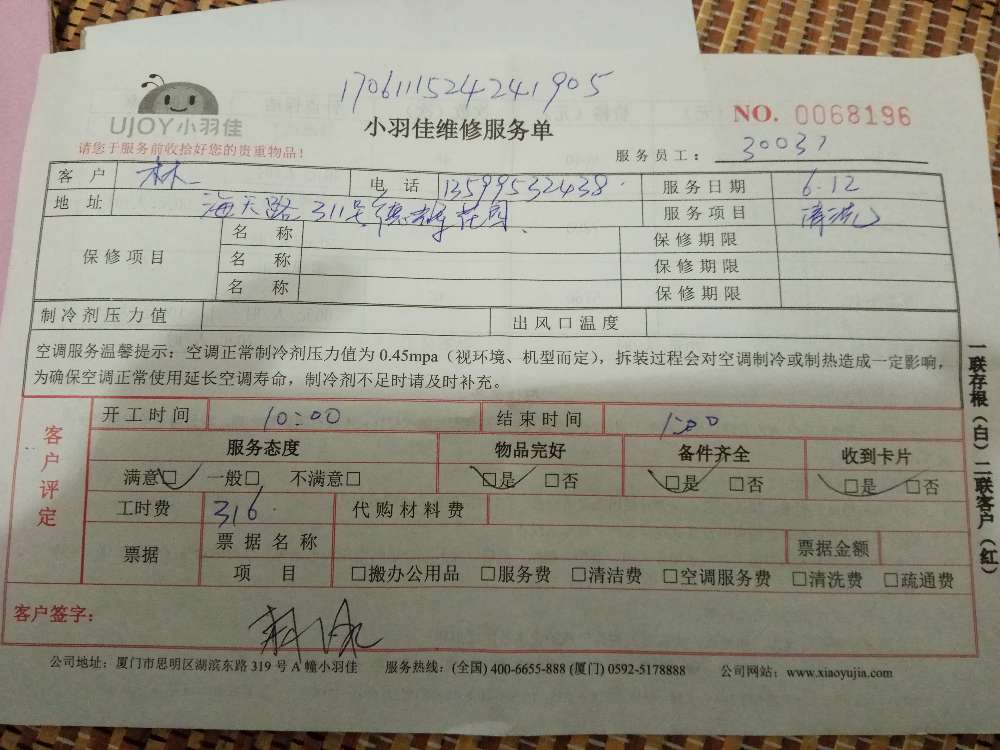 1706111524241905
UJOY小羽佳
小羽佳维修服务单
NO. 0068196
请您于服务前收拾好您的贵重物品！
服务员工： 30037
客户 林 电话 13599532438 服务日期 6.12
地址 海天路311号德雄花园 服务项目 清洗
保修项目 名称 保修期限
名称 保修期限
名称 保修期限
制冷剂压力值 出风口温度
空调服务温馨提示：空调正常制冷剂压力值为0.45mpa（视环境、机型而定），拆装过程会对空调制冷或制热造成一定影响，
为确保空调正常使用延长空调寿命，制冷剂不足时请及时补充。
客户评定
开工时间 10:00 结束时间 1:00
服务态度 物品完好 备件齐全 收到卡片
满意□ 一般□ 不满意□ □是 □否 □是 □否 □是 □否
工时费 316 代购材料费
票据 票据名称 票据金额
项目 □搬办公用品 □服务费 □清洁费 □空调服务费 □清洗费 □疏通费
客户签字：
公司地址：厦门市思明区湖滨东路319号A幢小羽佳 服务热线：(全国) 400-6655-888 (厦门) 0592-5178888 公司网站：www.xiaoyujia.com
一联存根（白）二联客户（红）